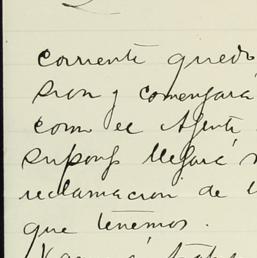 corriente quedo
sion y comenzara
como el Agente
supong llegará
reclamacion de l
que tenemos.